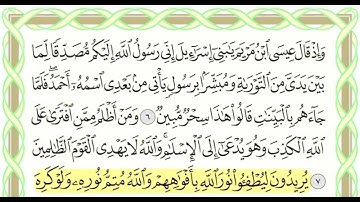 وَإِذۡ قَالَ عِيسَى ٱبۡنُ مَرۡيَمَ يَٰبَنِيٓ إِسۡرَٰٓءِيلَ إِنِّي رَسُولُ ٱللَّهِ إِلَيۡكُم مُّصَدِّقٗا لِّمَا
بَيۡنَ يَدَيَّ مِنَ ٱلتَّوۡرَىٰةِ وَمُبَشِّرَۢا بِرَسُولٖ يَأۡتِي مِنۢ بَعۡدِي ٱسۡمُهُۥٓ أَحۡمَدُۖ فَلَمَّا
جَآءَهُم بِٱلۡبَيِّنَٰتِ قَالُواْ هَٰذَا سِحۡرٞ مُّبِينٞ ٦ وَمَنۡ أَظۡلَمُ مِمَّنِ ٱفۡتَرَىٰ عَلَى
ٱللَّهِ ٱلۡكَذِبَ وَهُوَ يُدۡعَىٰٓ إِلَى ٱلۡإِسۡلَٰمِۚ وَٱللَّهُ لَا يَهۡدِي ٱلۡقَوۡمَ ٱلظَّٰلِمِينَ
٧ يُرِيدُونَ لِيُطۡفِـُٔواْ نُورَ ٱللَّهِ بِأَفۡوَٰهِهِمۡ وَٱللَّهُ مُتِمُّ نُورِهِۦ وَلَوۡ كَرِهَ